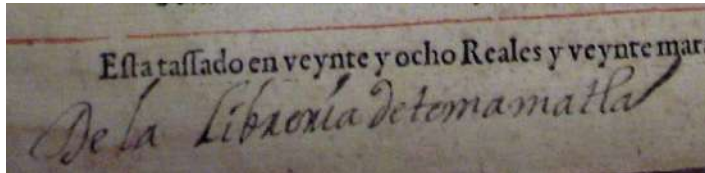 Esta tassado en veynte y ocho Reales y veynte mara
De la libreria de temamatla